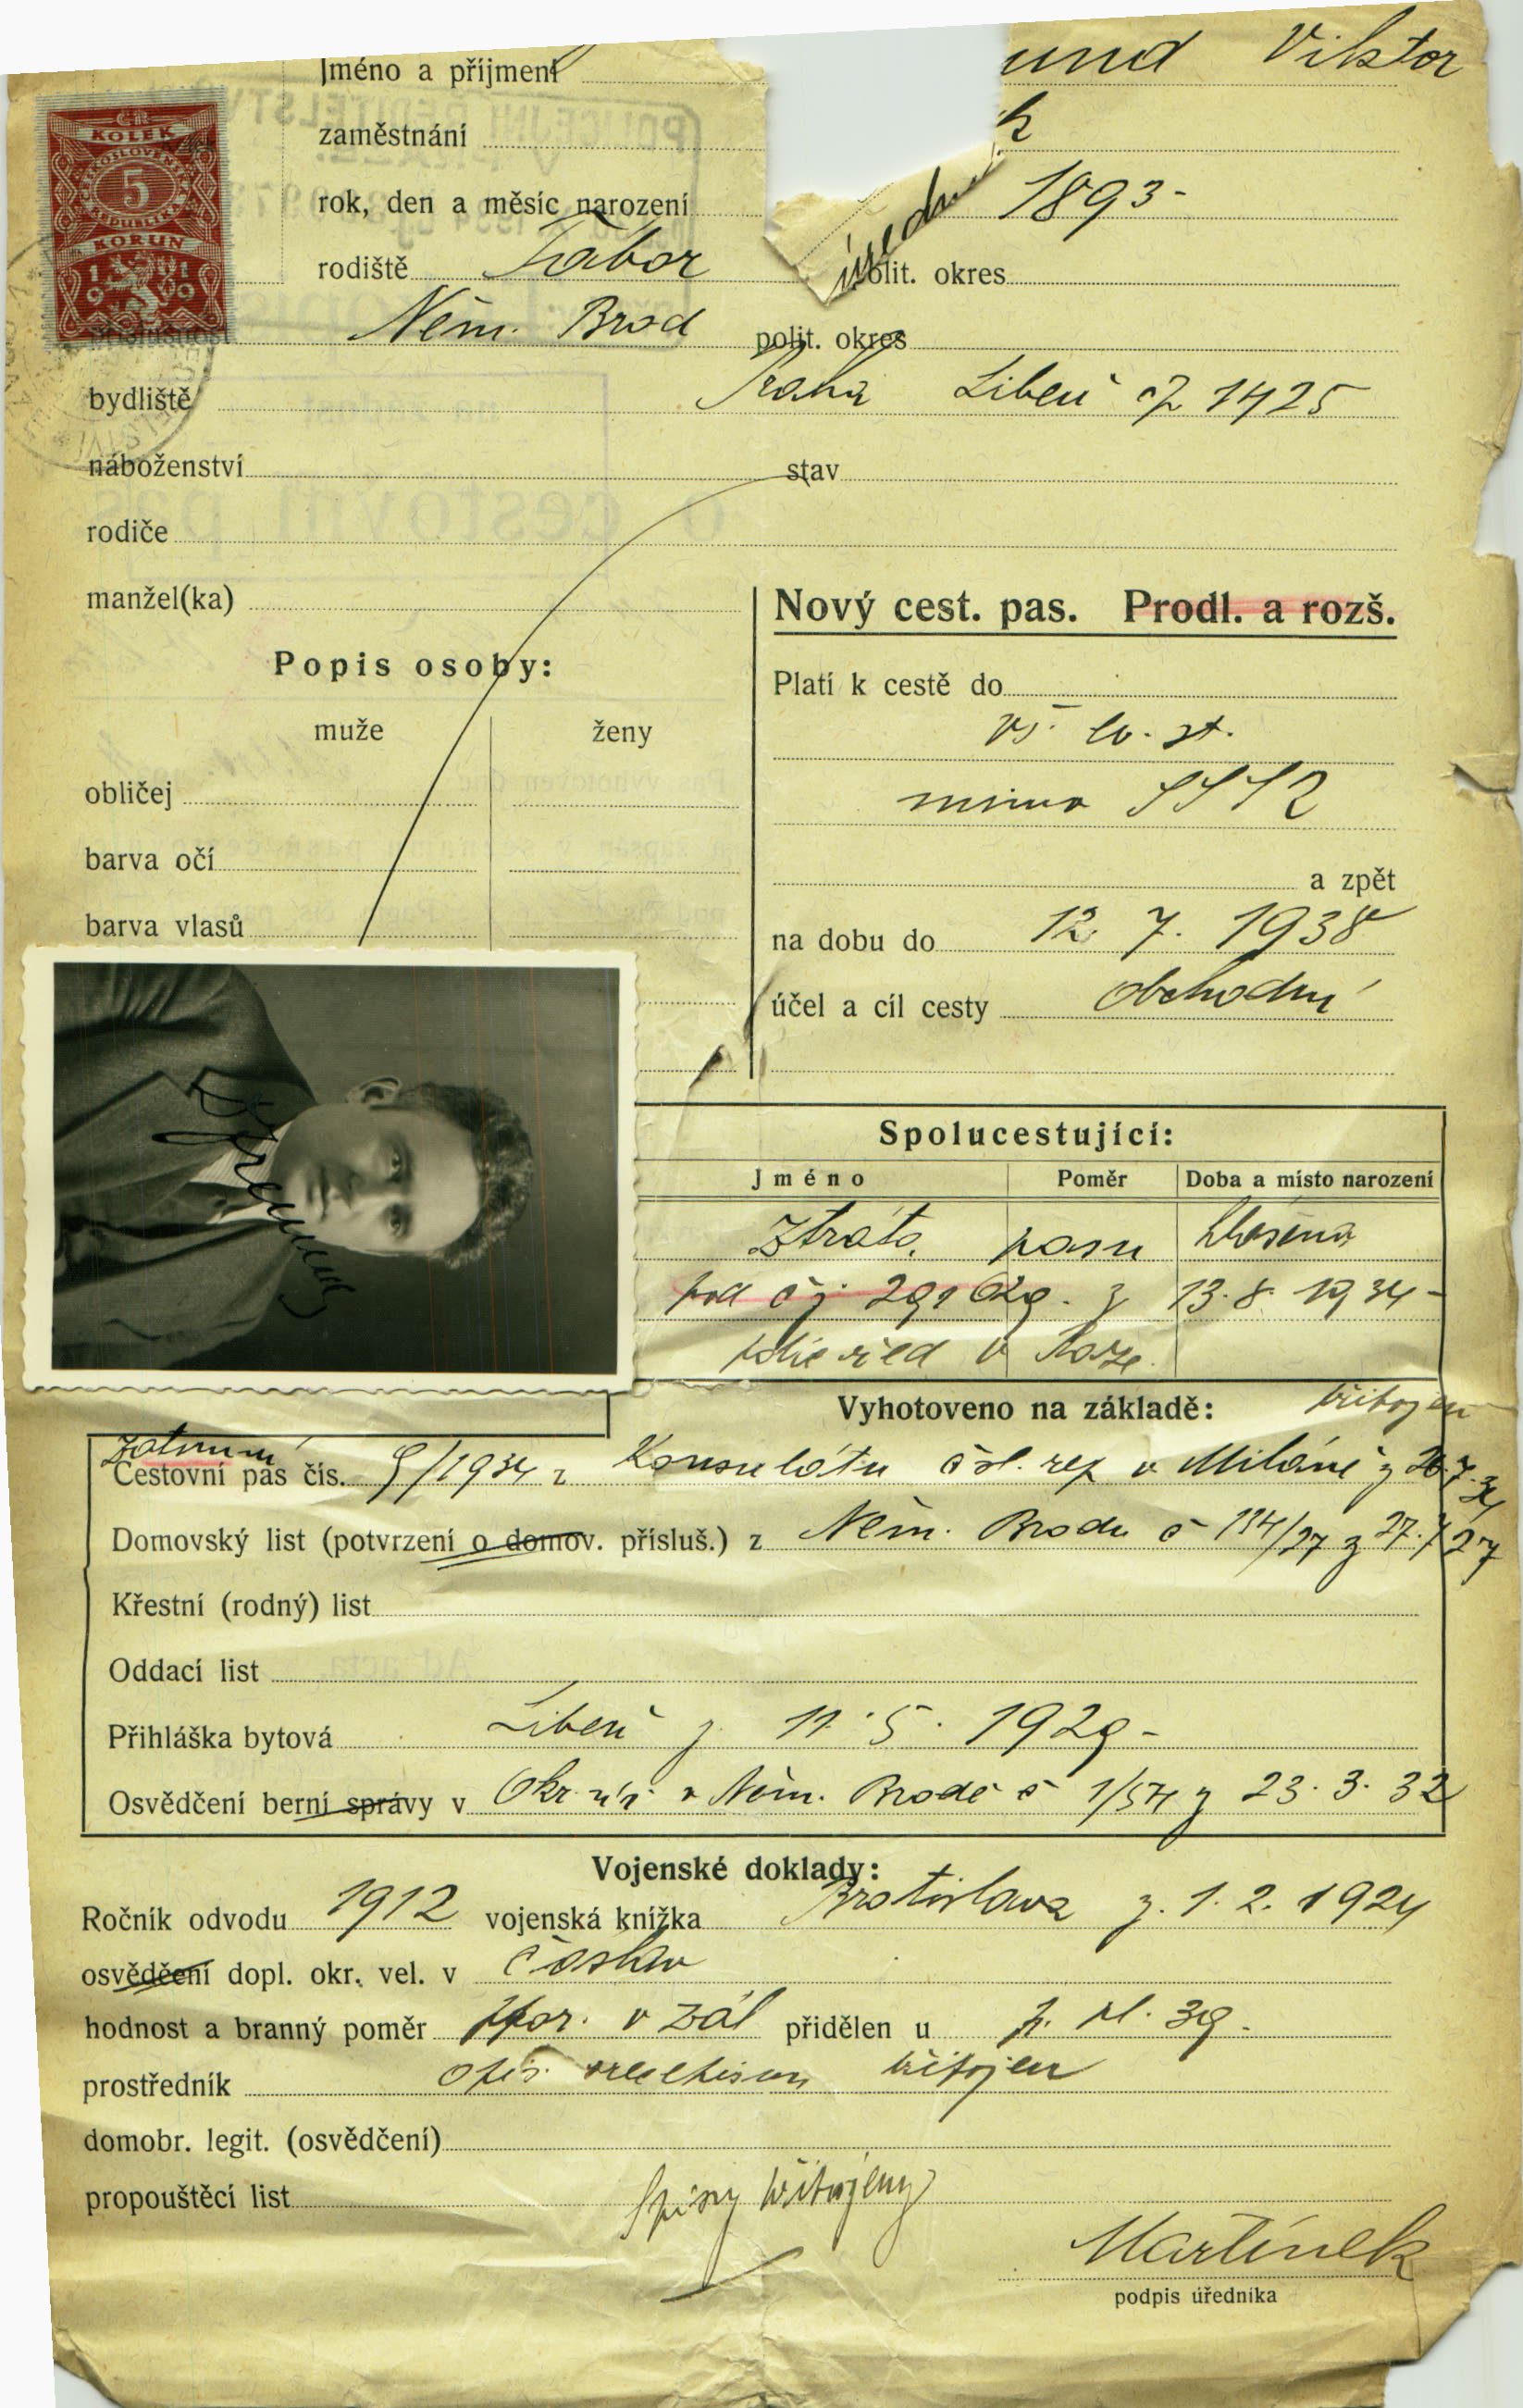 Jméno a příjmení und Viktor
zaměstnání
rok, den a měsíc narození 1893-
úředník
rodiště Tábor polit. okres
příslušnost Něm. Brod polit. okres
bydliště Praha Libeň čp 1425
náboženství stav
rodiče
manžel(ka)
Popis osoby:
muže ženy
obličej
barva očí
barva vlasů
Nový cest. pas. Prodl. a rozš.
Platí k cestě do
vš. ev. st.
mimo SSSR
a zpět
na dobu do 12. 7. 1938
účel a cíl cesty obchodní
ČR
KOLEK
ČESKOSLOVENSKÁ
5
REPUBLIKA
KORUN
1919
Spolucestující:
Jméno Poměr Doba a místo narození
Ztráta pasu hlášena
pod čj. 29 z 13. 8. 1934-
v
Vyhotoveno na základě:
připojen
zatímní
Cestovní pas čís. 9/1934 z Konsulátu čsl. rep v Miláně z 26.7.34
Domovský list (potvrzení o domov. přísluš.) z Něm. Brodu č 194/27 z 27. 7 27
Křestní (rodný) list
Oddací list
Přihláška bytová Libeň z 11. 5. 1929-
Osvědčení berní správy v Okr. úř. v Něm. Brodě č 1/574 z 23. 3. 32
Vojenské doklady:
Ročník odvodu 1912 vojenská knížka Bratislava z. 1. 2. 1924
osvědčení dopl. okr. vel. v Čáslav
hodnost a branný poměr npor. v zál přidělen u p. pl. 39.
prostředník opis připojen
domobr. legit. (osvědčení)
propouštěcí list
Spisy připojeny
Martínek
podpis úředníka